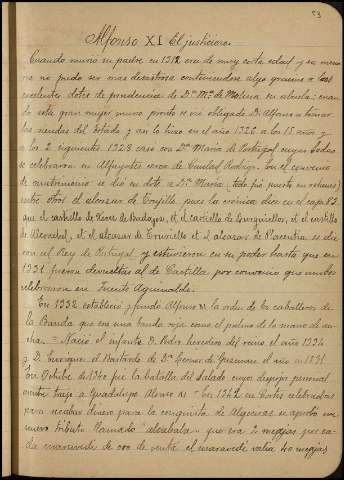 53
Alfonso XI El justiciero
Cuando murio su padre en 1312 era de muy corta edad y su meno
ria no pudo ser mas desastrosa conteniendose algo gracias a las
excelentes dotes de prudencia de Dª Mª de Molina su abuela; cuan
do esta gran mujer murio pronto se vio obligado D. Alfonso a tomar
las riendas del Estado, y asi lo hizo en el año 1325 a los 15 años y
a los 2 siguientes 1328 caso con Dª Maria de Portugal cuyas bodas
se celebraron en Alfayates cerca de Ciudad Rodrigo. En el convenio
de casamiento se dio en dote a Dª Maria (todo fue puesto en rehenes)
entre otros el alcazar de Trujillo, pues la crónica dice en el capº 82
que el castillo de Xerez de Badajoz, et el castillo de Burguiellos, et el castillo
de Alconchel, et el alcazar de Truxiello et el alcazar de Placentia se dio
con el Rey de Portugal y estuvieron en su poder hasta que en
1331 fueron devueltas al de Castilla por convenio que ambos
celebraron en Fuente Aguinaldo.
En 1332 estableció y fundó Alfonso XI la orden de los caballeros de
la Banda que era una banda roja como el palmo de la mano de an
cha = Nació el infante D. Pedro heredero del reino el año 1334
y D. Enrique el Bastardo de Dª Leonor de Guzman el año 1333
En Octubre de 1340 fue la batalla del Salado cuyos despojos personal
mente trajo a Guadalupe Alonso XI = En 1342 en Cortes celebradas
para recabar dinero para la conquista de Algeciras se aprobó un
nuevo tributo llamado alcabala que era 2 meajas por ca
da maravedi de oro de venta el maravedi valia 40 meajas